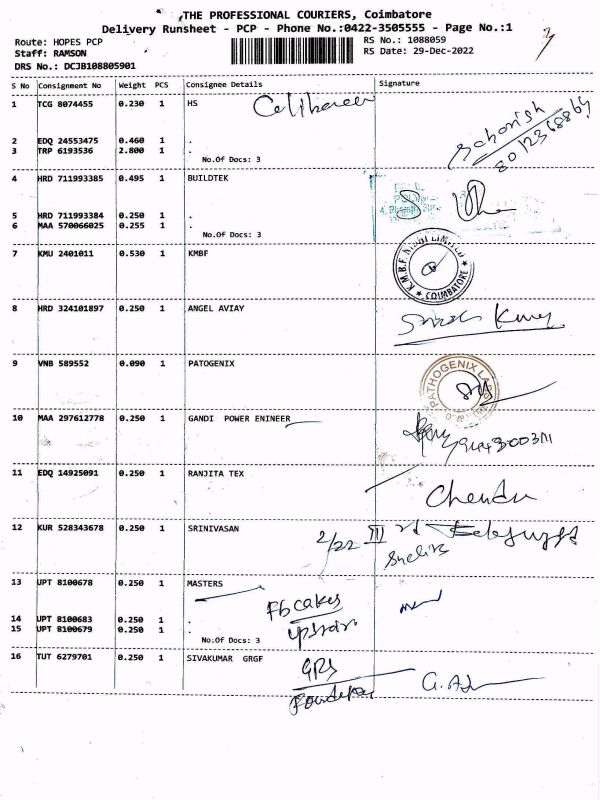 THE PROFESSIONAL COURIERS, Coimbatore
Delivery Runsheet - PCP - Phone No.:0422-3505555 - Page No.:1
Route: HOPES PCP
RS No.: 1088059
Staff: RAMSON
RS Date: 29-Dec-2022
DRS No.: DCJB108805901
S No Consignment No Weight PCS Consignee Details Signature
1 TCG 8074455 0.230 1 HS
2 EDQ 24553475 0.460 1 .
3 TRP 6193536 2.800 1 .
No.Of Docs: 3
4 HRD 711993385 0.495 1 BUILDTEK
5 HRD 711993384 0.250 1 .
6 MAA 570066025 0.255 1 .
No.Of Docs: 3
7 KMU 2401011 0.530 1 KMBF
K.M.B.F. NIDHI LIMITED
★ COIMBATORE ★
8 HRD 324101897 0.250 1 ANGEL AVIAY
9 VNB 589552 0.090 1 PATOGENIX
PATHOGENIX LABS
10 MAA 297612778 0.250 1 GANDI POWER ENINEER
11 EDQ 14925091 0.250 1 RANJITA TEX
12 KUR 528343678 0.250 1 SRINIVASAN
2/22 III
13 UPT 8100678 0.250 1 MASTERS
Fb cakes
14 UPT 8100683 0.250 1 .
15 UPT 8100679 0.250 1 .
No.Of Docs: 3
16 TUT 6279701 0.250 1 SIVAKUMAR GRGF